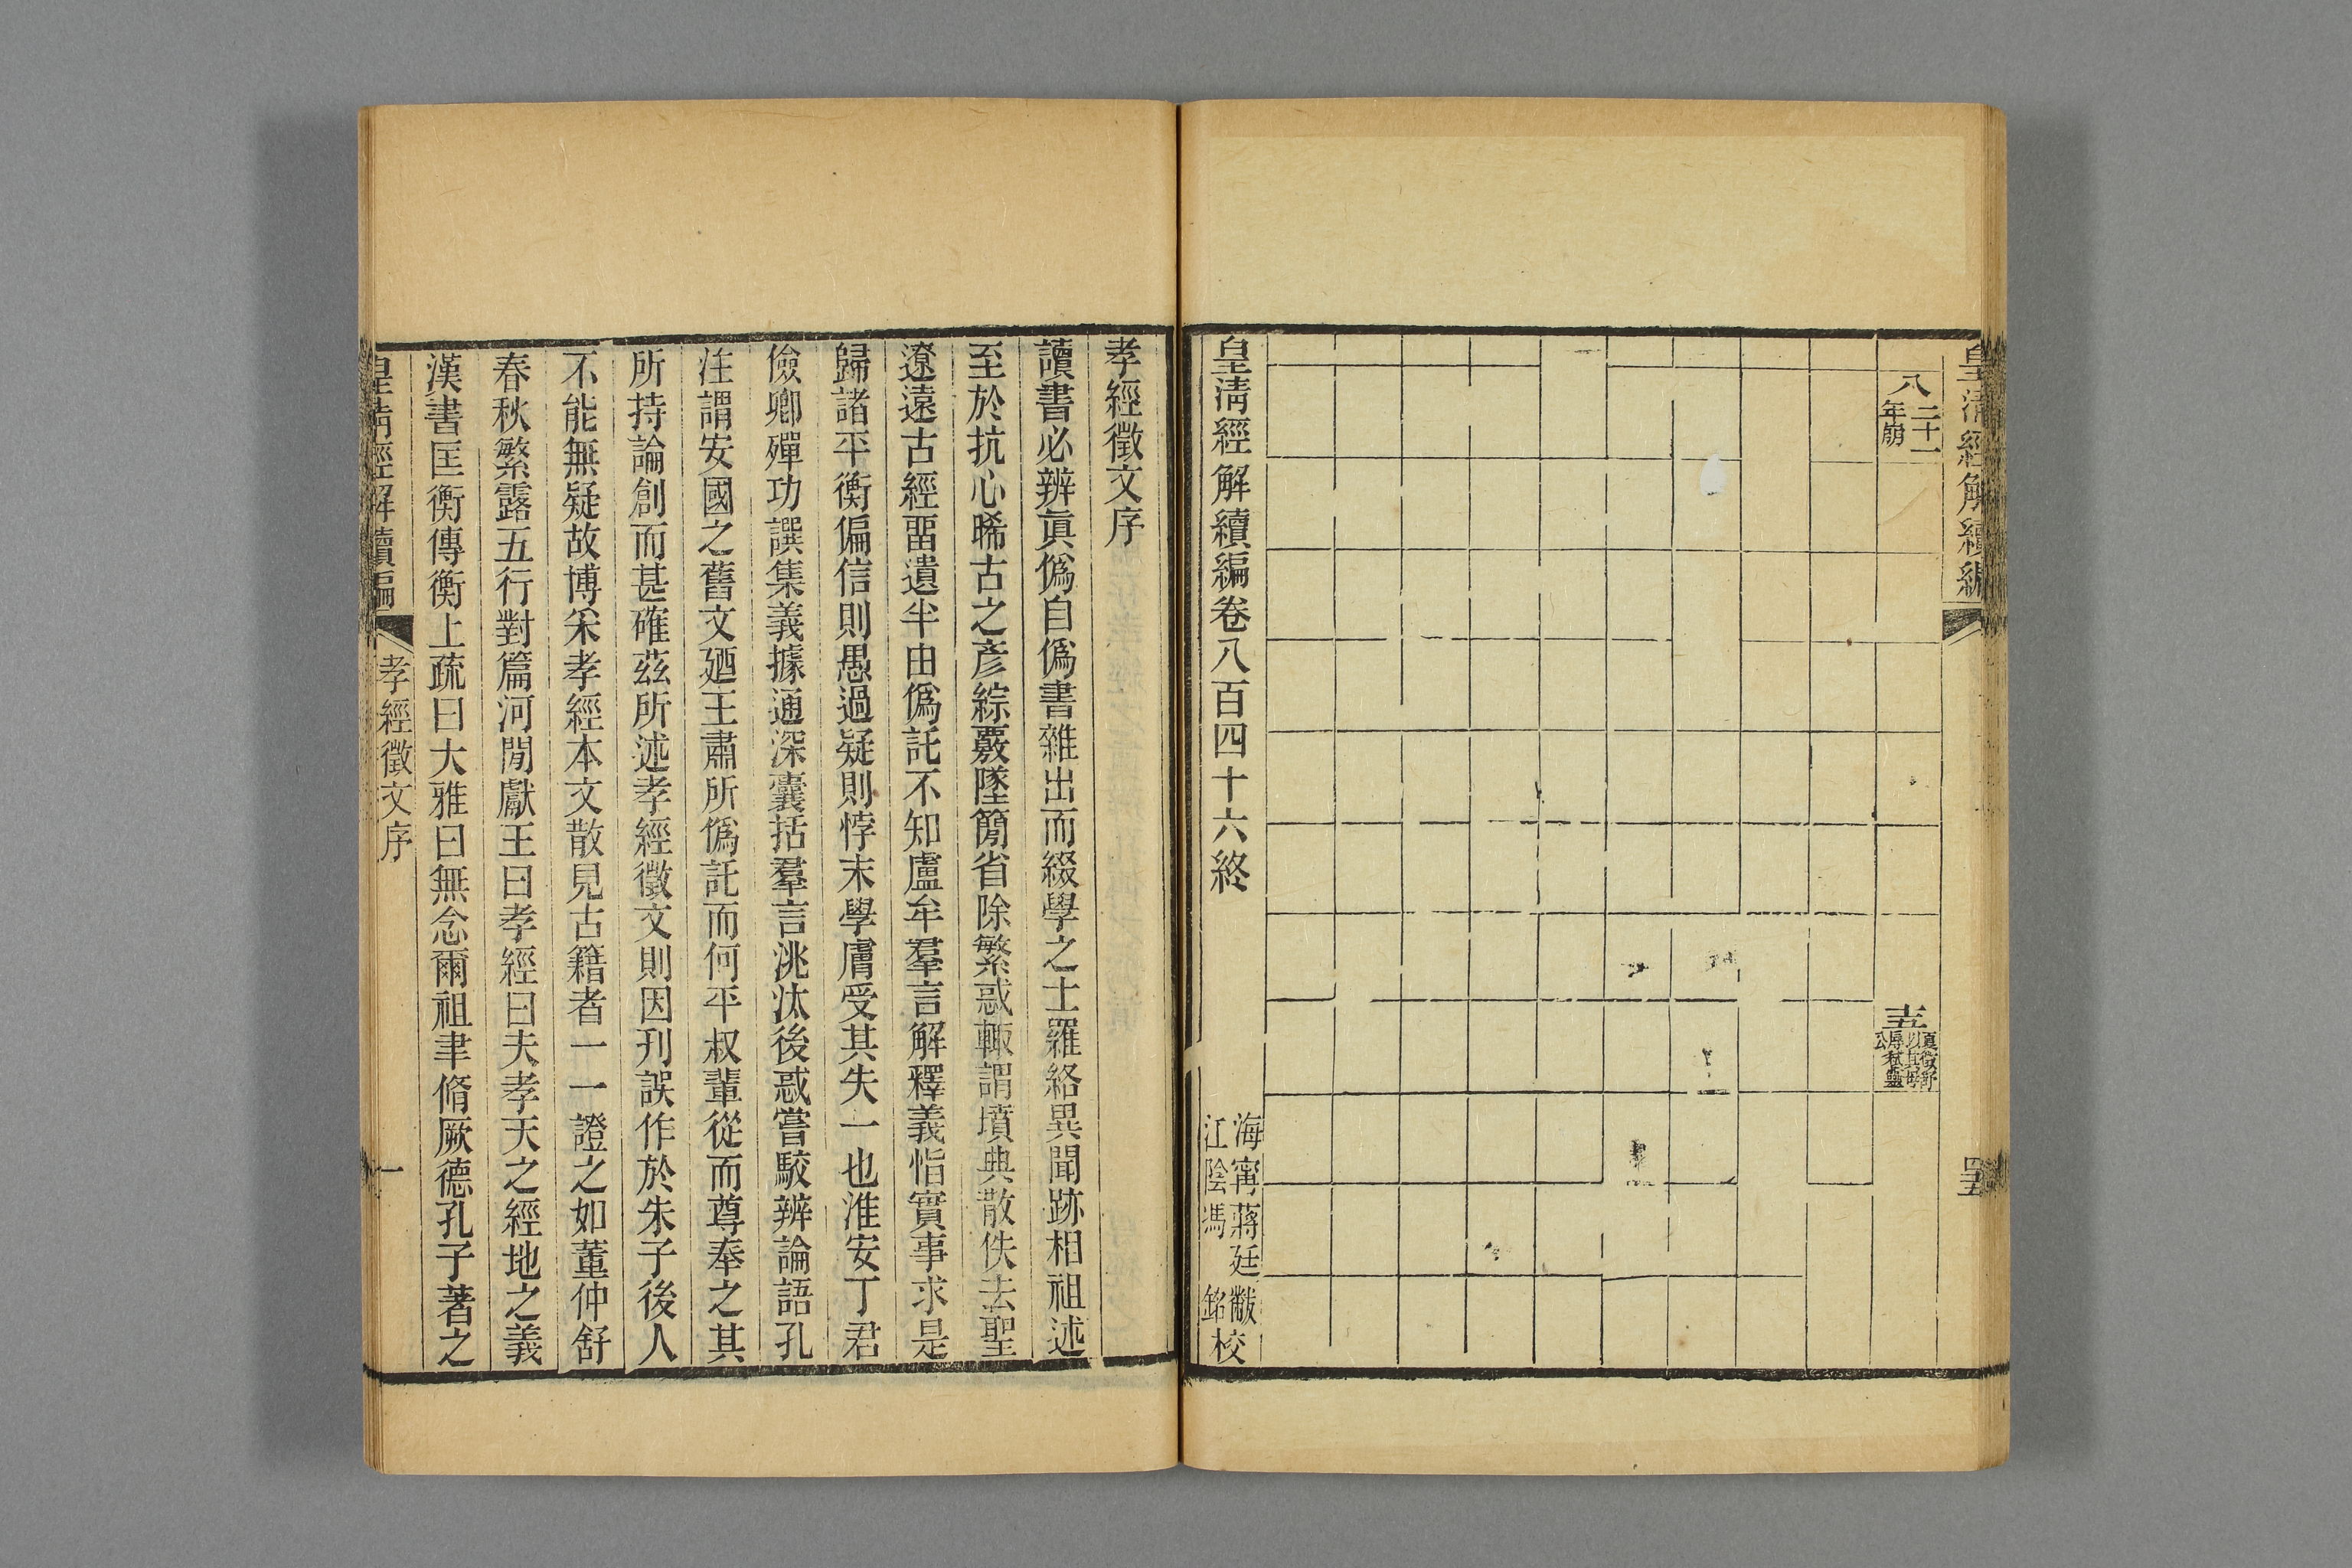 皇清經解續編
八
二十一
年崩
十五
夏徵舒
以其母
辱弑靈
公
皇清經解續編卷八百四十六終
海寧蔣廷黻
江陰馮銘
校
孝經徵文序
讀書必辨眞僞自僞書雜出而綴學之士羅絡異聞跡相祖述
至於抗心晞古之彦綜覈墜簡省除繁惑輙謂墳典散佚去聖
遼遠古經畱遺半由僞託不知盧牟羣言解釋義恉實事求是
歸諸平衡偏信則愚過疑則悖末學膚受其失一也淮安丁君
儉卿殫功譔集義據通深囊括羣言洮汰後惑嘗駮辨論語孔
注謂安國之舊文廼王肅所僞託而何平叔輩從而尊奉之其
所持論創而甚確茲所述孝經徵文則因刋誤作於朱子後人
不能無疑故博采孝經本文散見古籍者一一證之如董仲舒
春秋繁露五行對篇河閒獻王曰孝經曰夫孝天之經地之義
漢書匡衡傳衡上疏曰大雅曰無念爾祖聿脩厥德孔子著之
皇清經解續編
孝經徵文序
一